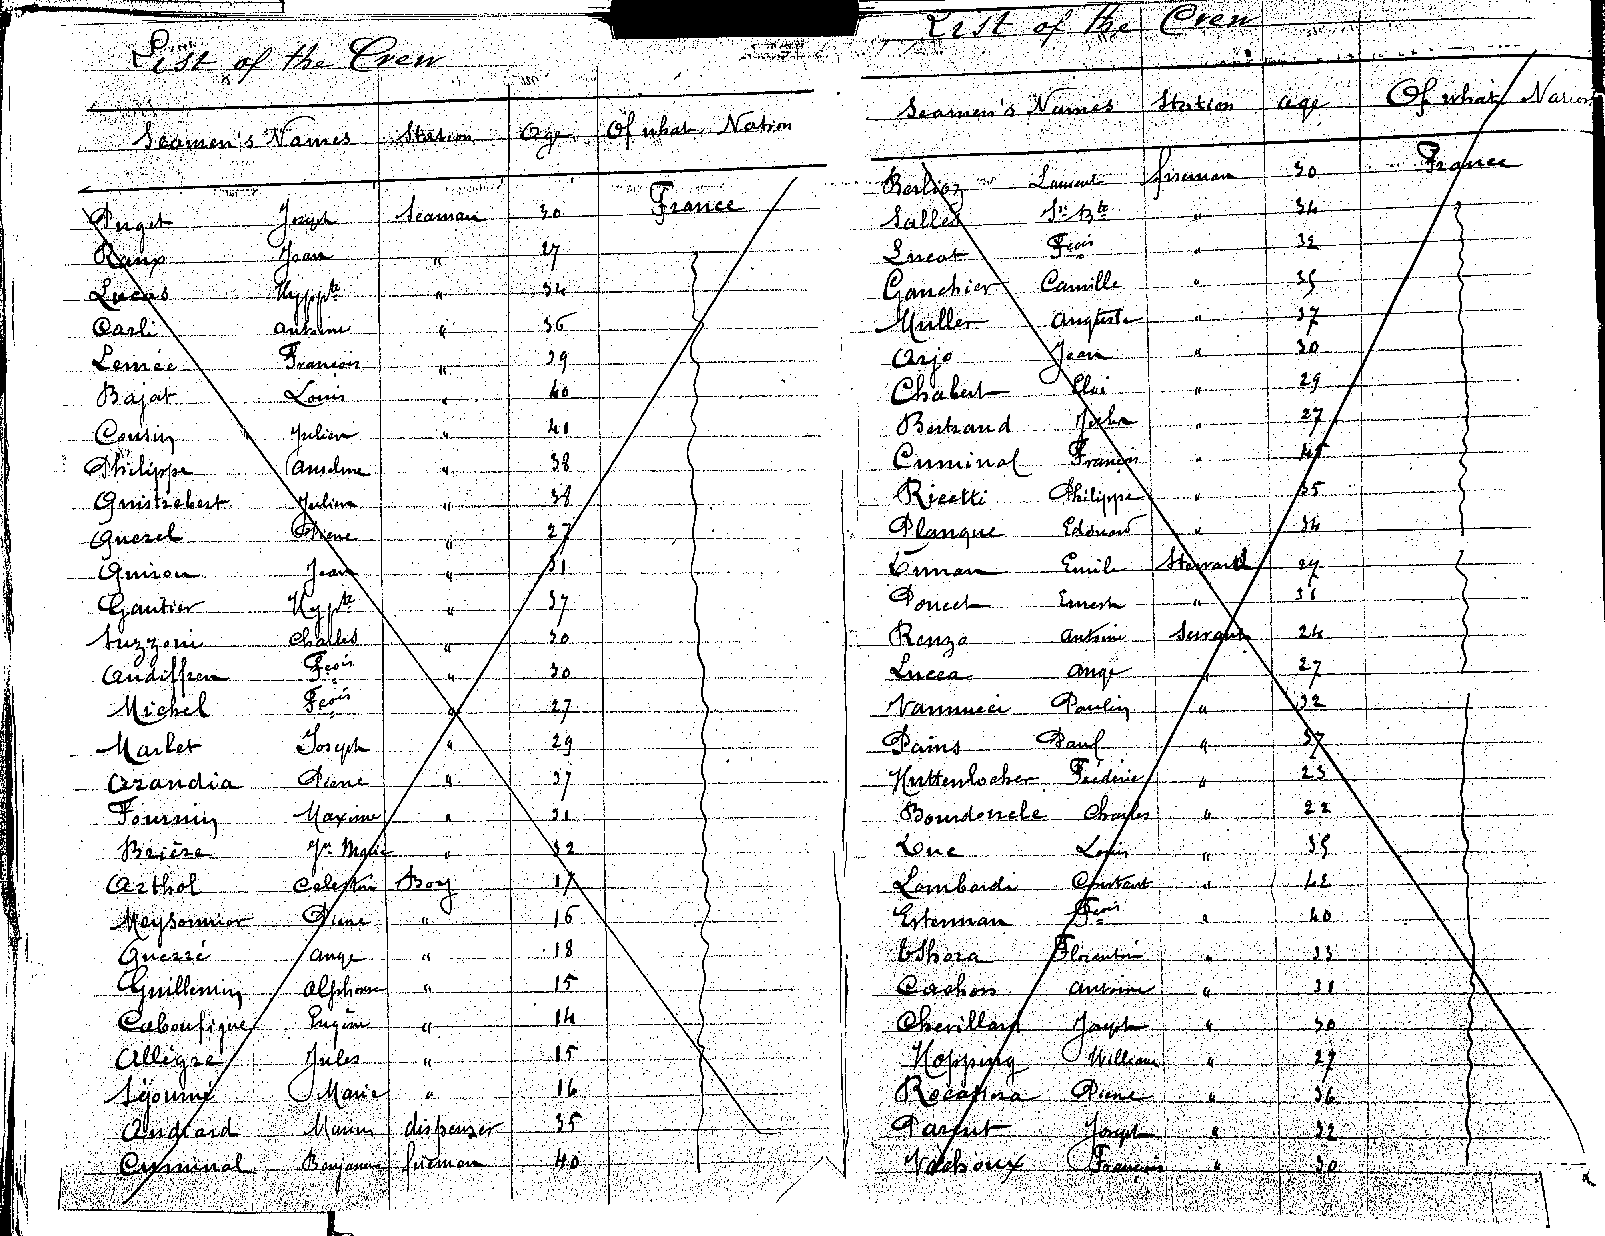 List of the Crew
Seamen's Names Station Age Of what Nation
Puget Joseph Seaman 30 France
Raux Jean " 27
Lucas Hyppte " 34
Carli Antoine " 36
Lemée François " 29
Bajat Louis " 40
Cousin Julien " 41
Philippe Anselme " 38
Guistrebert Julien " 38
Querel Pierre " 27
Guirou Jean " 31
Gautier Hypte " 37
Suzzoni Charles " 30
Audiffren Fçois " 30
Michel Fçois " 27
Marlet Joseph " 29
Arandia Pierre " 37
Fournin Maxime " 31
Beière Jn Marie " 32
Arthol Celestin Boy 17
Meysonnier Pierre " 16
Guerré Ange " 18
Guillemin Alphonse " 15
Caboufigue Eugène " 14
Allègre Jules " 15
Séjourné Marie " 16
Andrard Marius dispenser 35
Cuminal Benjamin fireman 40
List of the Crew
Seamen's Names Station Age Of what Nation
Berlioz Laurent fireman 30 France
Salles Jn Bte " 34
Lucat Fçois " 32
Gauchier Camille " 35
Muller Auguste " 37
Arjo Jean " 30
Chabert Eloi " 29
Bertrand " 27
Cuminal François " 45
Ricetti Philippe " 35
Planque Edouard " 34
Emile Steward 29
Poncet Ernest "
Renzo Antoine Servant 24
Lucca Ange " 27
Vannucci Paulin " 32
Pains Paul " 37
Huttenlocher Fréderic " 23
Bourdoncle Charles " 22
Luc Louis " 35
Lombardi Constant " 42
Esterman Fçois " 40
Florentin " 33
Cachon Antoine " 31
Chevillard Joseph " 30
Hopping William " 27
Rocafiora Pierre " 36
Parent Joseph " 32
Vachoux François " 30